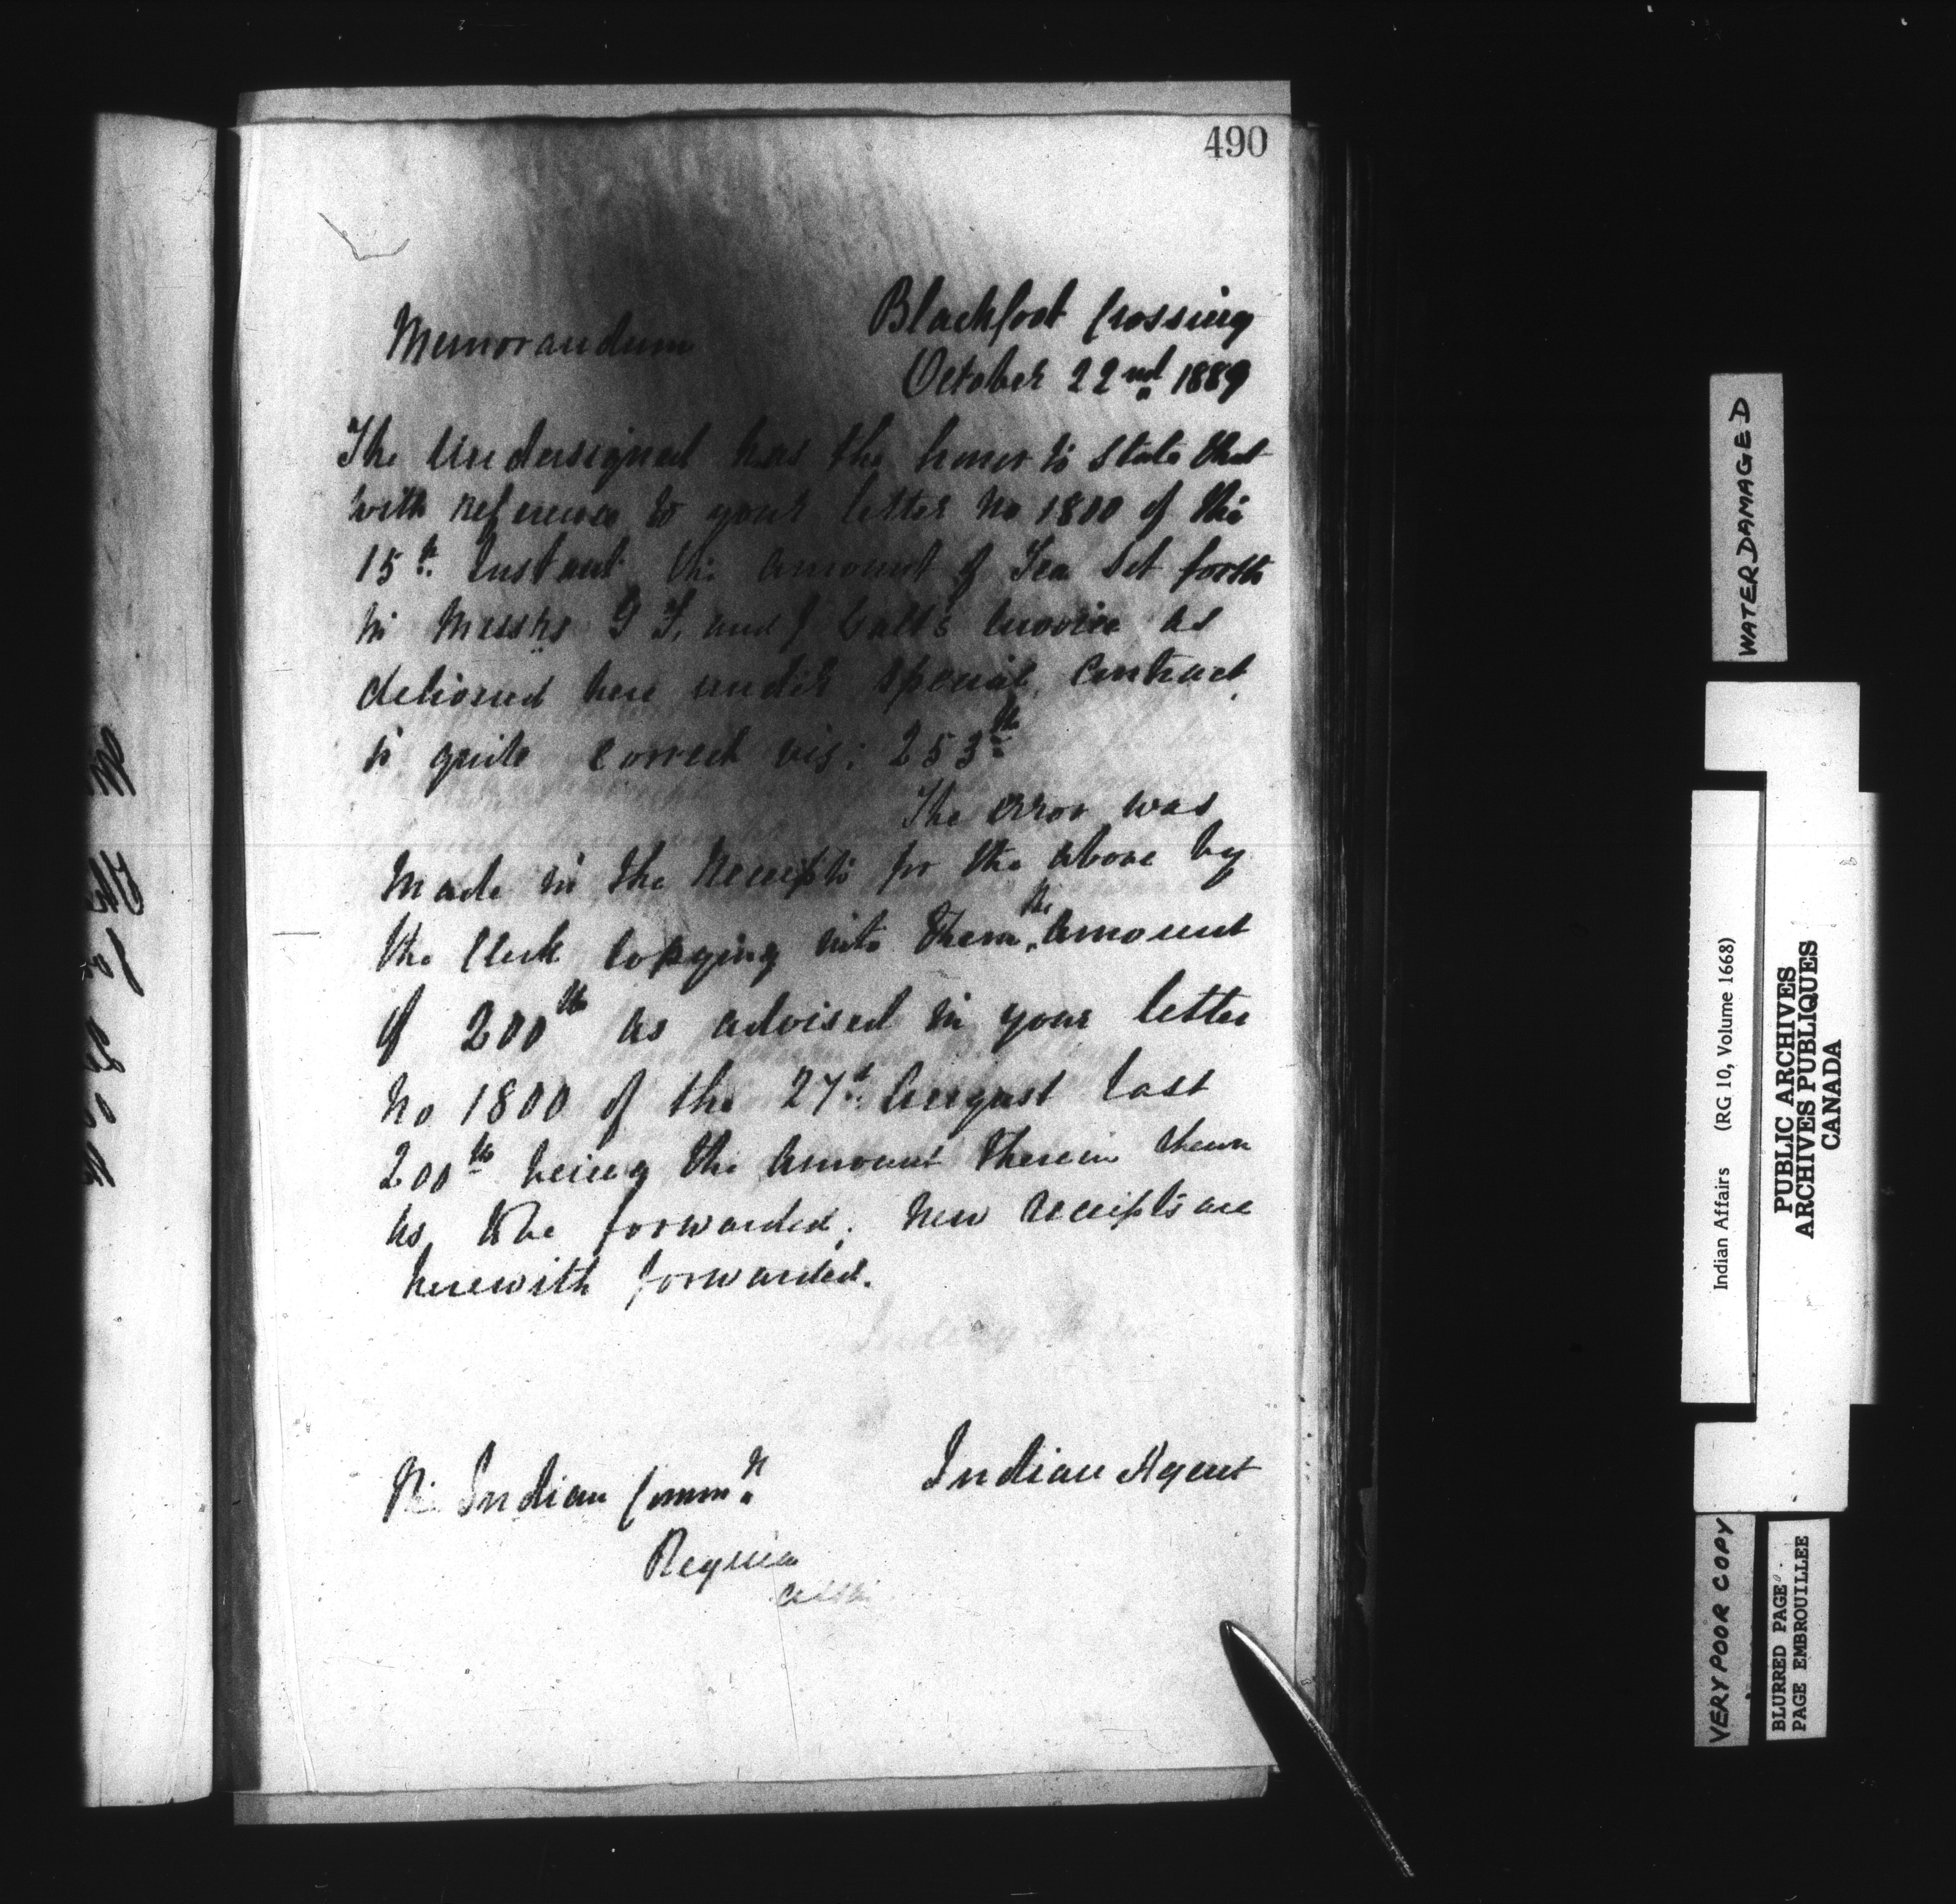 490
Blackfoot Crossing
Memorandum
October 22nd. 1889
The Undersigned has the honor to state that
with reference to your letter No 1800 of the
15th. Instant the amount of Tea set forth
in Messrs G F. and J Galt's invoice as
delivered here under special contract
is quite correct vis: 253 lb
The error was
made in the Receipts for the above by
the Clerk copying into them the amount
of 200 lb as advised in your letter
No 1800 of the 27th. August last
200 lb being the amount therein shewn
as to be forwarded; new receipts are
herewith forwarded.
Indian Agent
The Indian Commr.
Regina
Assa
WATER DAMAGED
Indian Affairs (RG 10, Volume 1668)
PUBLIC ARCHIVES
ARCHIVES PUBLIQUES
CANADA
VERY POOR COPY
BLURRED PAGE
PAGE EMBROUILLEE